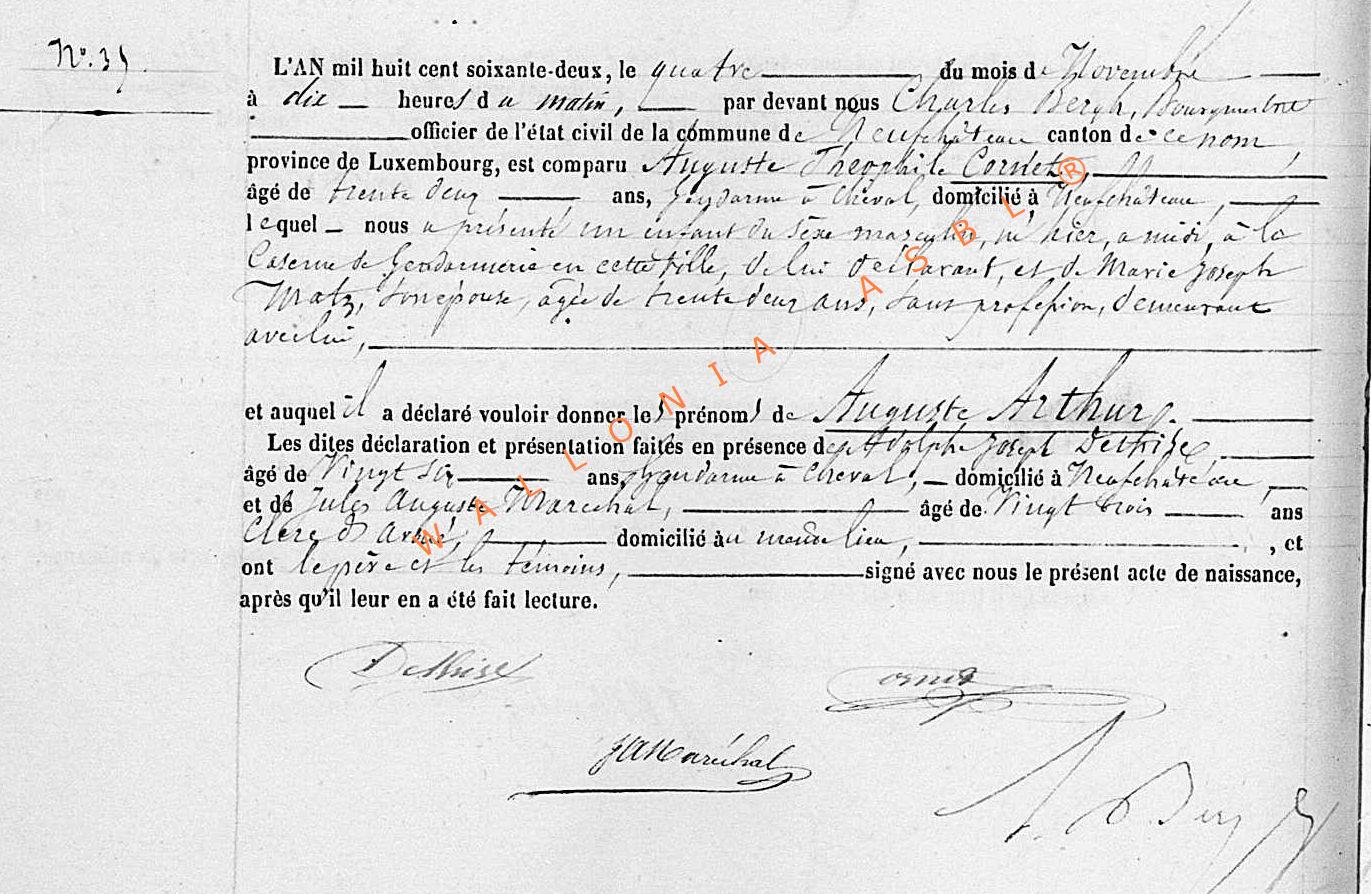 N°. 35.
L'AN mil huit cent soixante-deux, le quatre du mois de Novembre
à dix heures du matin, par devant nous Charles Bergh, Bourgmestre
officier de l'état civil de la commune de Neufchâteau canton de ce nom,
province de Luxembourg, est comparu Auguste Théophile Cornet,
âgé de trente deux ans, gendarme à cheval, domicilié à Neufchâteau,
lequel nous a présenté un enfant du sèxe masculin, né hier, a midi, à la
Caserne de Gendarmerie en cette Ville, de lui déclarant, et de Marie Joseph
Matz, son épouse, agée de trente deux ans, sans profession, demeurant
avec lui,
et auquel il a déclaré vouloir donner les prénoms de Auguste Arthur.
Les dites déclaration et présentation faites en présence de Adolphe Joseph Dethise
âgé de Vingt six ans, gendarme à cheval, domicilié à Neufchâteau,
et de Jules Auguste Marechal, âgé de Vingt trois ans
Clerc d'avoué, domicilié au même lieu, , et
ont le père et les témoins, signé avec nous le présent acte de naissance,
après qu'il leur en a été fait lecture.
Dethise
Cornet
JAMaréchal
WALLONIA ASBL ®